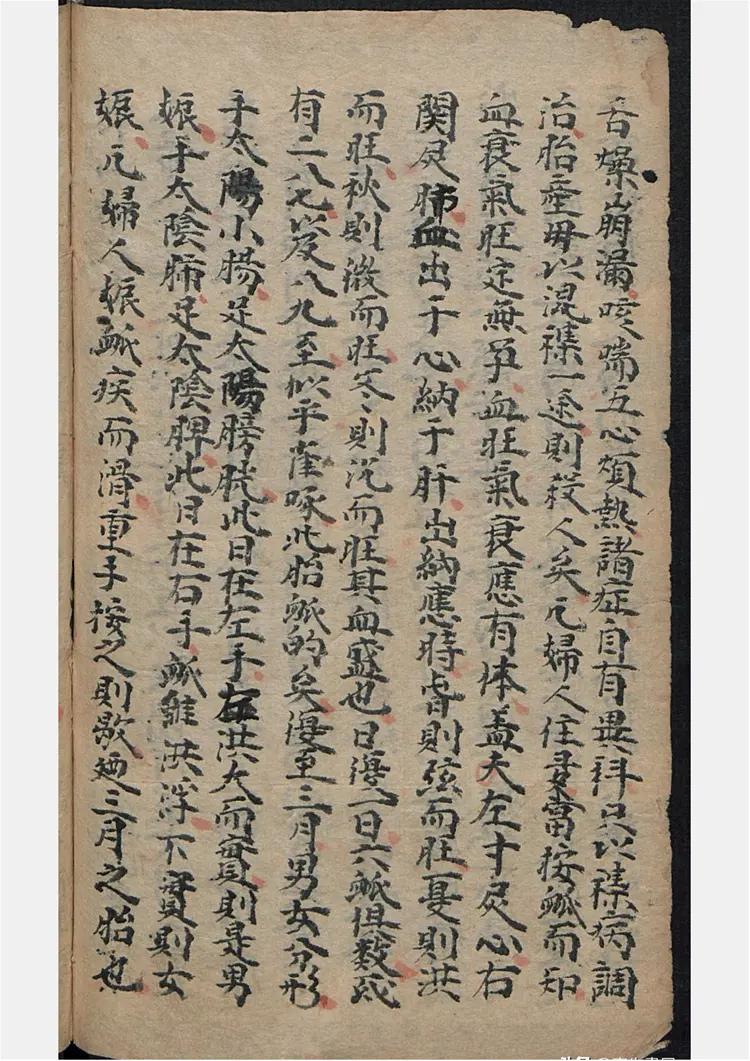 舌燥崩漏咳喘五心煩熱諸症自有異科只以襍病調
治胎產毋以混襍一途則殺人矣凡婦人住妻當按脈而知
血衰氣旺定無孕血旺氣衰應有体盖夫左寸反心右
関反肺血出于心納于肝出納應時昔則弦而旺夏則洪
而旺秋則濇而旺冬則沉而旺其血盛也日邊一日六脈俱数或
有二八七以及八九至似乎雀啄此胎脈的矣邊至三月男女分形
手太陽小腸足太陽膀胱此日在左手洪大而實則是男
娠手太陰肺足太陰脾此日在右手脈雖洪浮下實則女
娠凡婦人娠脈疾而滑重手按之則歇廼三月之胎也